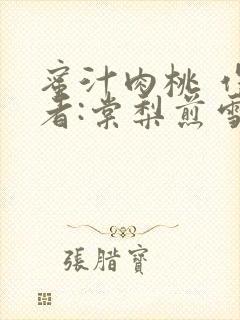 蜜汁肉桃 作
者:棠梨煎雪
張腊寶